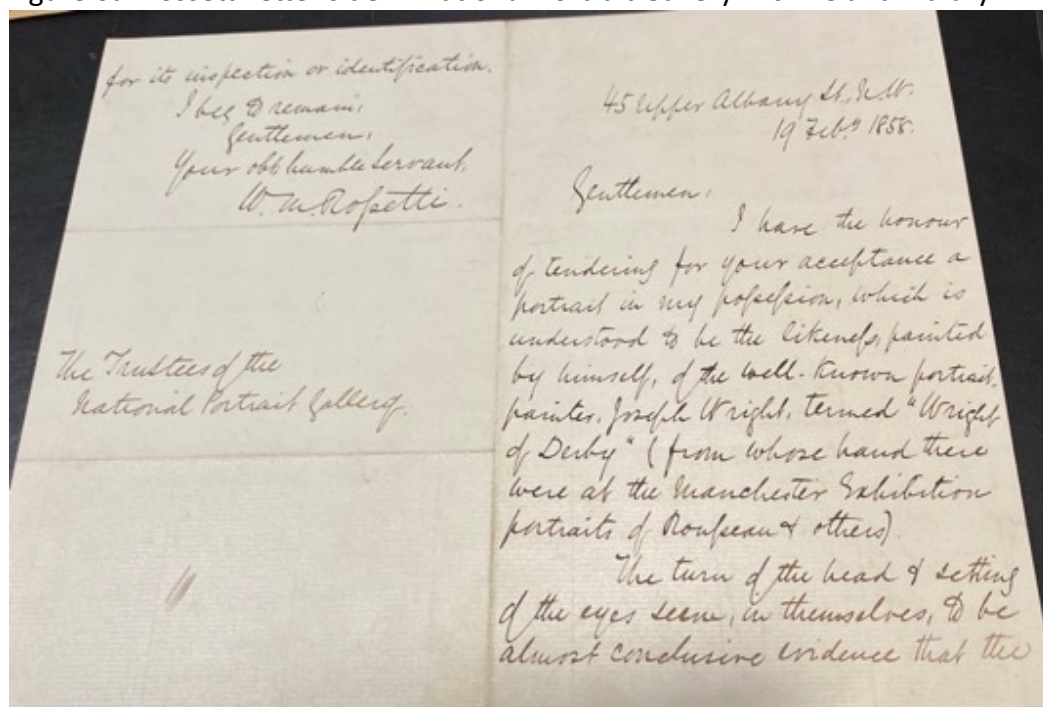 Rossetti Letter side National Portrait Gallery Archive and Library
for its inspection or identification.
I beg to remain,
Gentlemen,
Your obt humble Servant,
W. M. Roſsetti.
The Trustees of the
National Portrait Gallery.
45 Upper Albany St., N.W.
19 Feby 1858.
Gentlemen,
I have the honour
of tendering for your acceptance a
portrait in my poſseſsion, which is
understood to be the likeneſs, painted
by himself, of the well-known portrait-
painter, Joseph Wright, termed "Wright
of Derby" (from whose hand there
were at the Manchester Exhibition
portraits of Rouſseau & others).
The turn of the head & setting
of the eyes seem, in themselves, to be
almost conclusive evidence that the